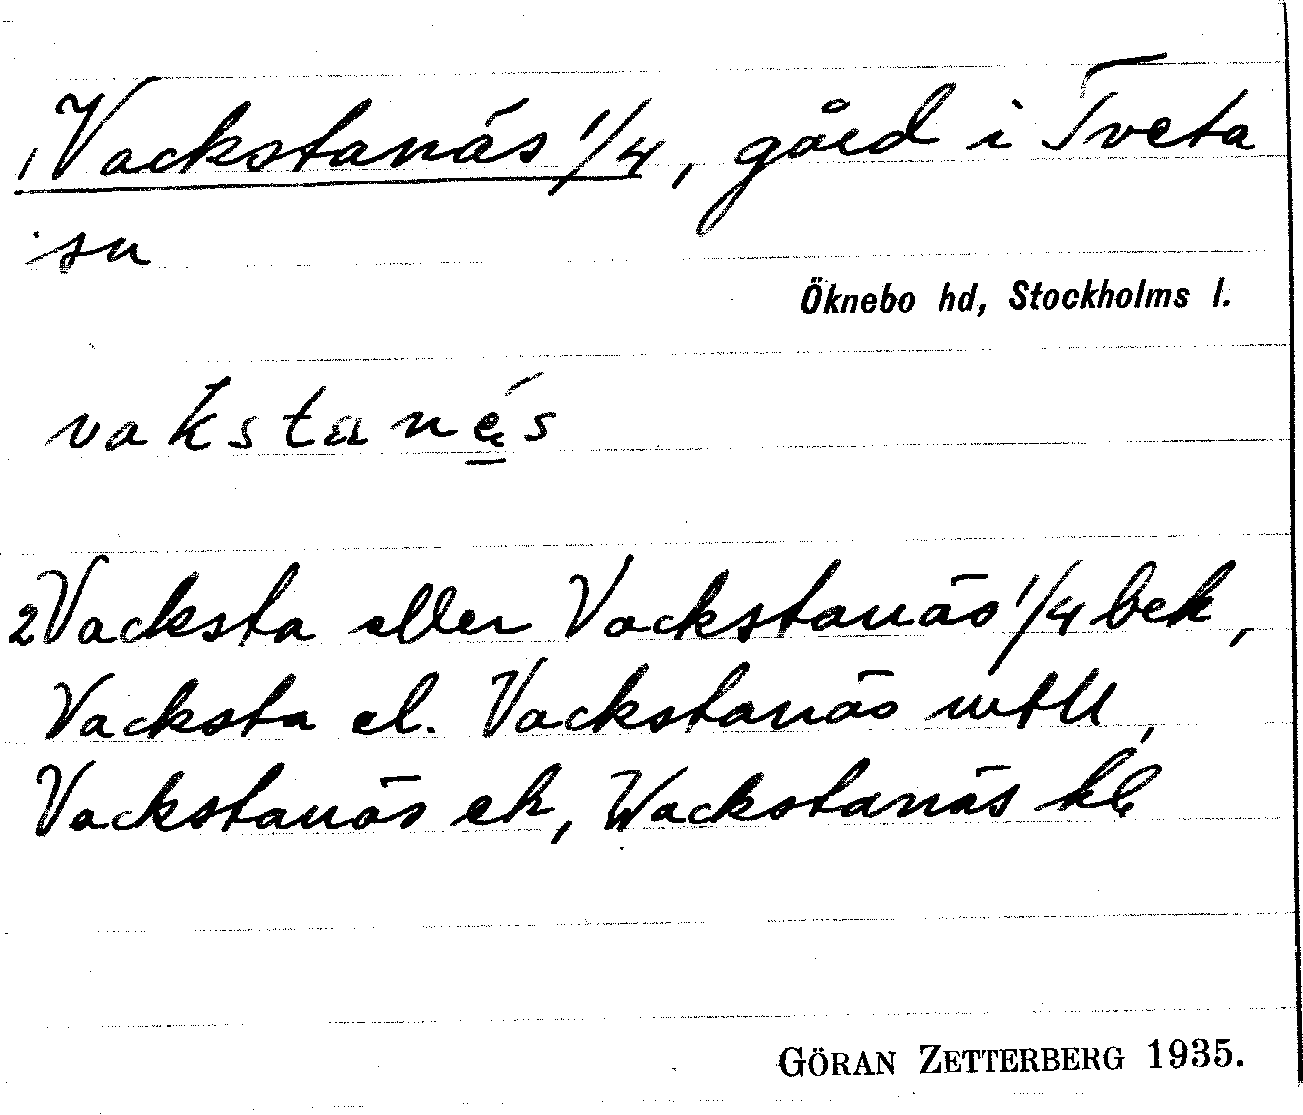 1 Vackstanäs 1/4, gård i Tveta
sn
Öknebo hd, Stockholms l.
vakstanä́s
2 Vacksta eller Vackstanäs 1/4 bek,
Vacksta el. Vackstanäs mtll,
Vackstanäs ek, Wackstanäs kb
GÖRAN ZETTERBERG 1935.